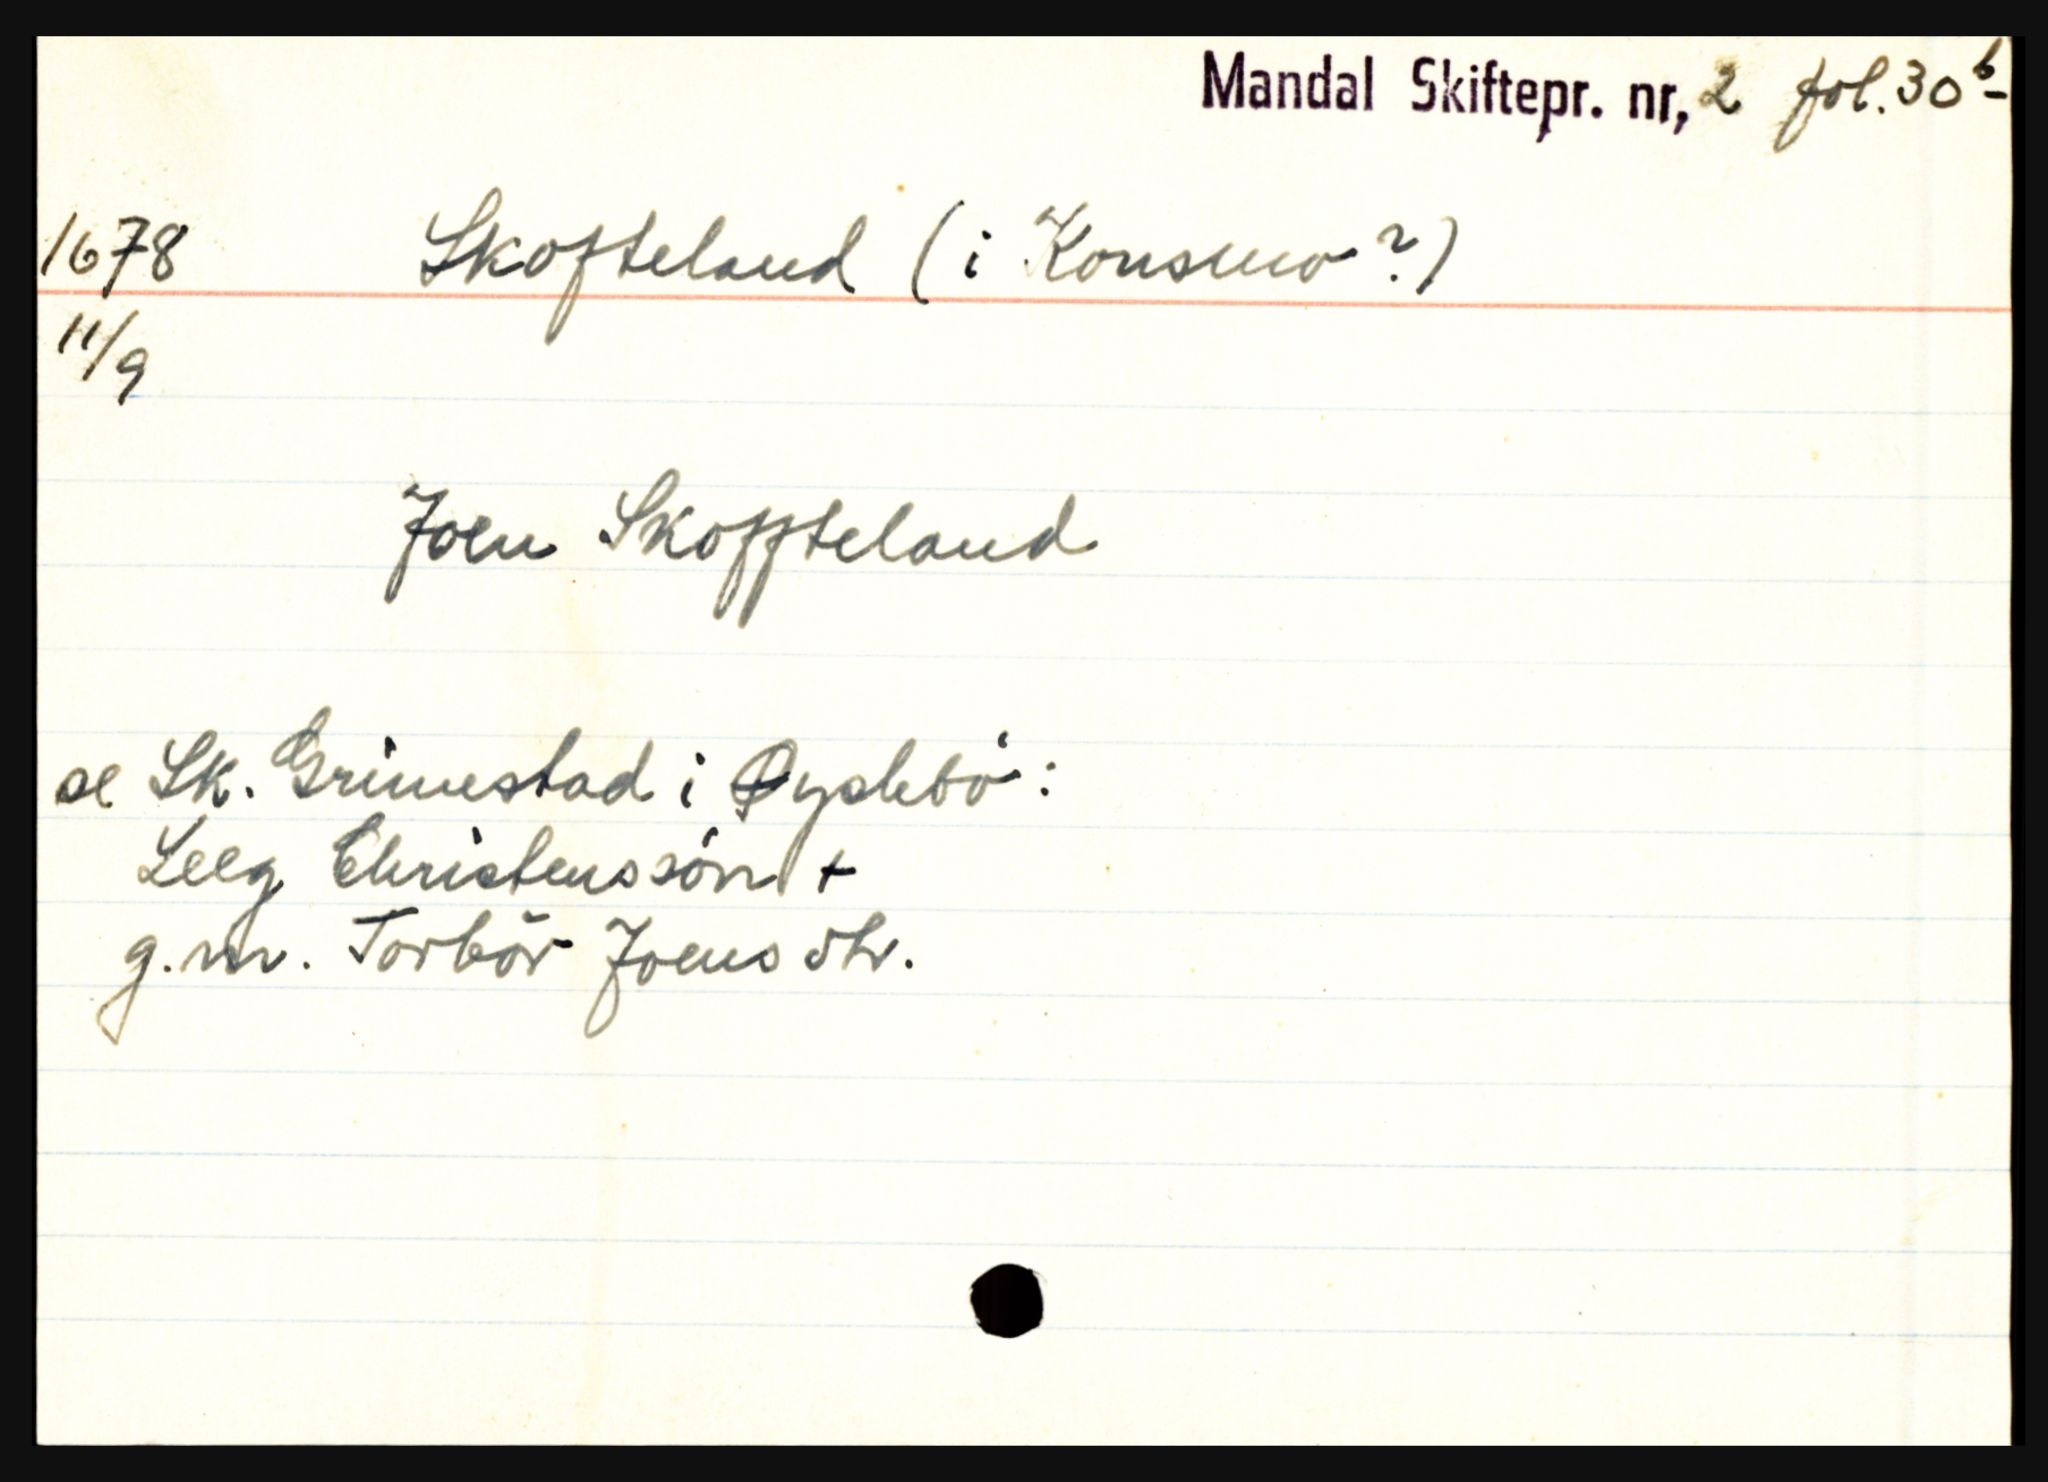 Mandal Skiftepr. nr, 2 fol. 30 b -
1678 Skofteland (i Konsmo?)
11/9
Joen Skoffteland
se Sk. Grimestad i Øyslebö:
Leeg Christenssön +
g.m. Torbör Joens dtr.